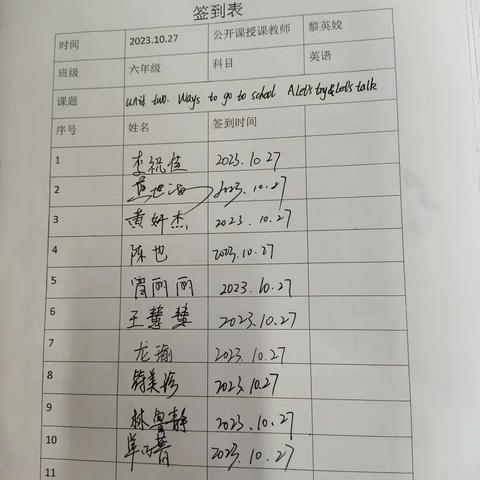 签到表
时间 2023.10.27 公开课授课教师 黎英姣
班级 六年级 科目 英语
课题 Unit two. Ways to go to school A Let's try & Let's talk
序号 姓名 签到时间
1 李祝佳 2023.10.27
2 2023.10.27
3 黄妍杰 2023.10.27
4 陈也 2023.10.27
5 曾丽丽 2023.10.27
6 王慧慧 2023.10.27
7 龙瑜 2023.10.27
8 符美珍 2023.10.27
9 林鲁静 2023.10.27
10 2023.10.27
11